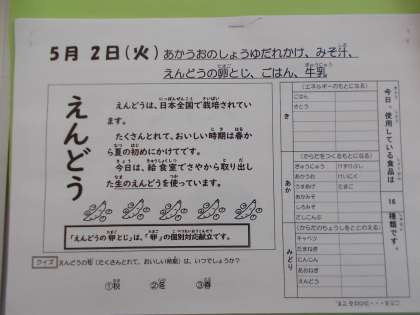 5月 2日(火)
あかうおのしょうゆだれかけ、みそ汁、
えんどうの卵とじ、ごはん、牛乳
えんどう
えんどうは、日本全国で栽培されてい
ます。
たくさんとれて、おいしい時期は春か
ら夏の初めにかけてです。
今日は、給食室でさやから取り出し
た生のえんどうを使っています。
「えんどうの卵とじ」は、「卵」の個別対応献立です。
クイズ
えんどうの旬(たくさんとれて、おいしい時期)は、いつでしょうか？
①秋 ②冬 ③春
今日、使用している食品は 16 種類です。
き
(エネルギーのもとになる)
ごはん
さとう
あか
(からだをつくるもとになる)
ぎゅうにゅう
あかうお
けいにく
たまご
あかみそ
しろみそ
だしこんぶ
みどり
(からだのちょうしをととのえる)
キャベツ
たまねぎ
にんじん
あおねぎ
えんどう